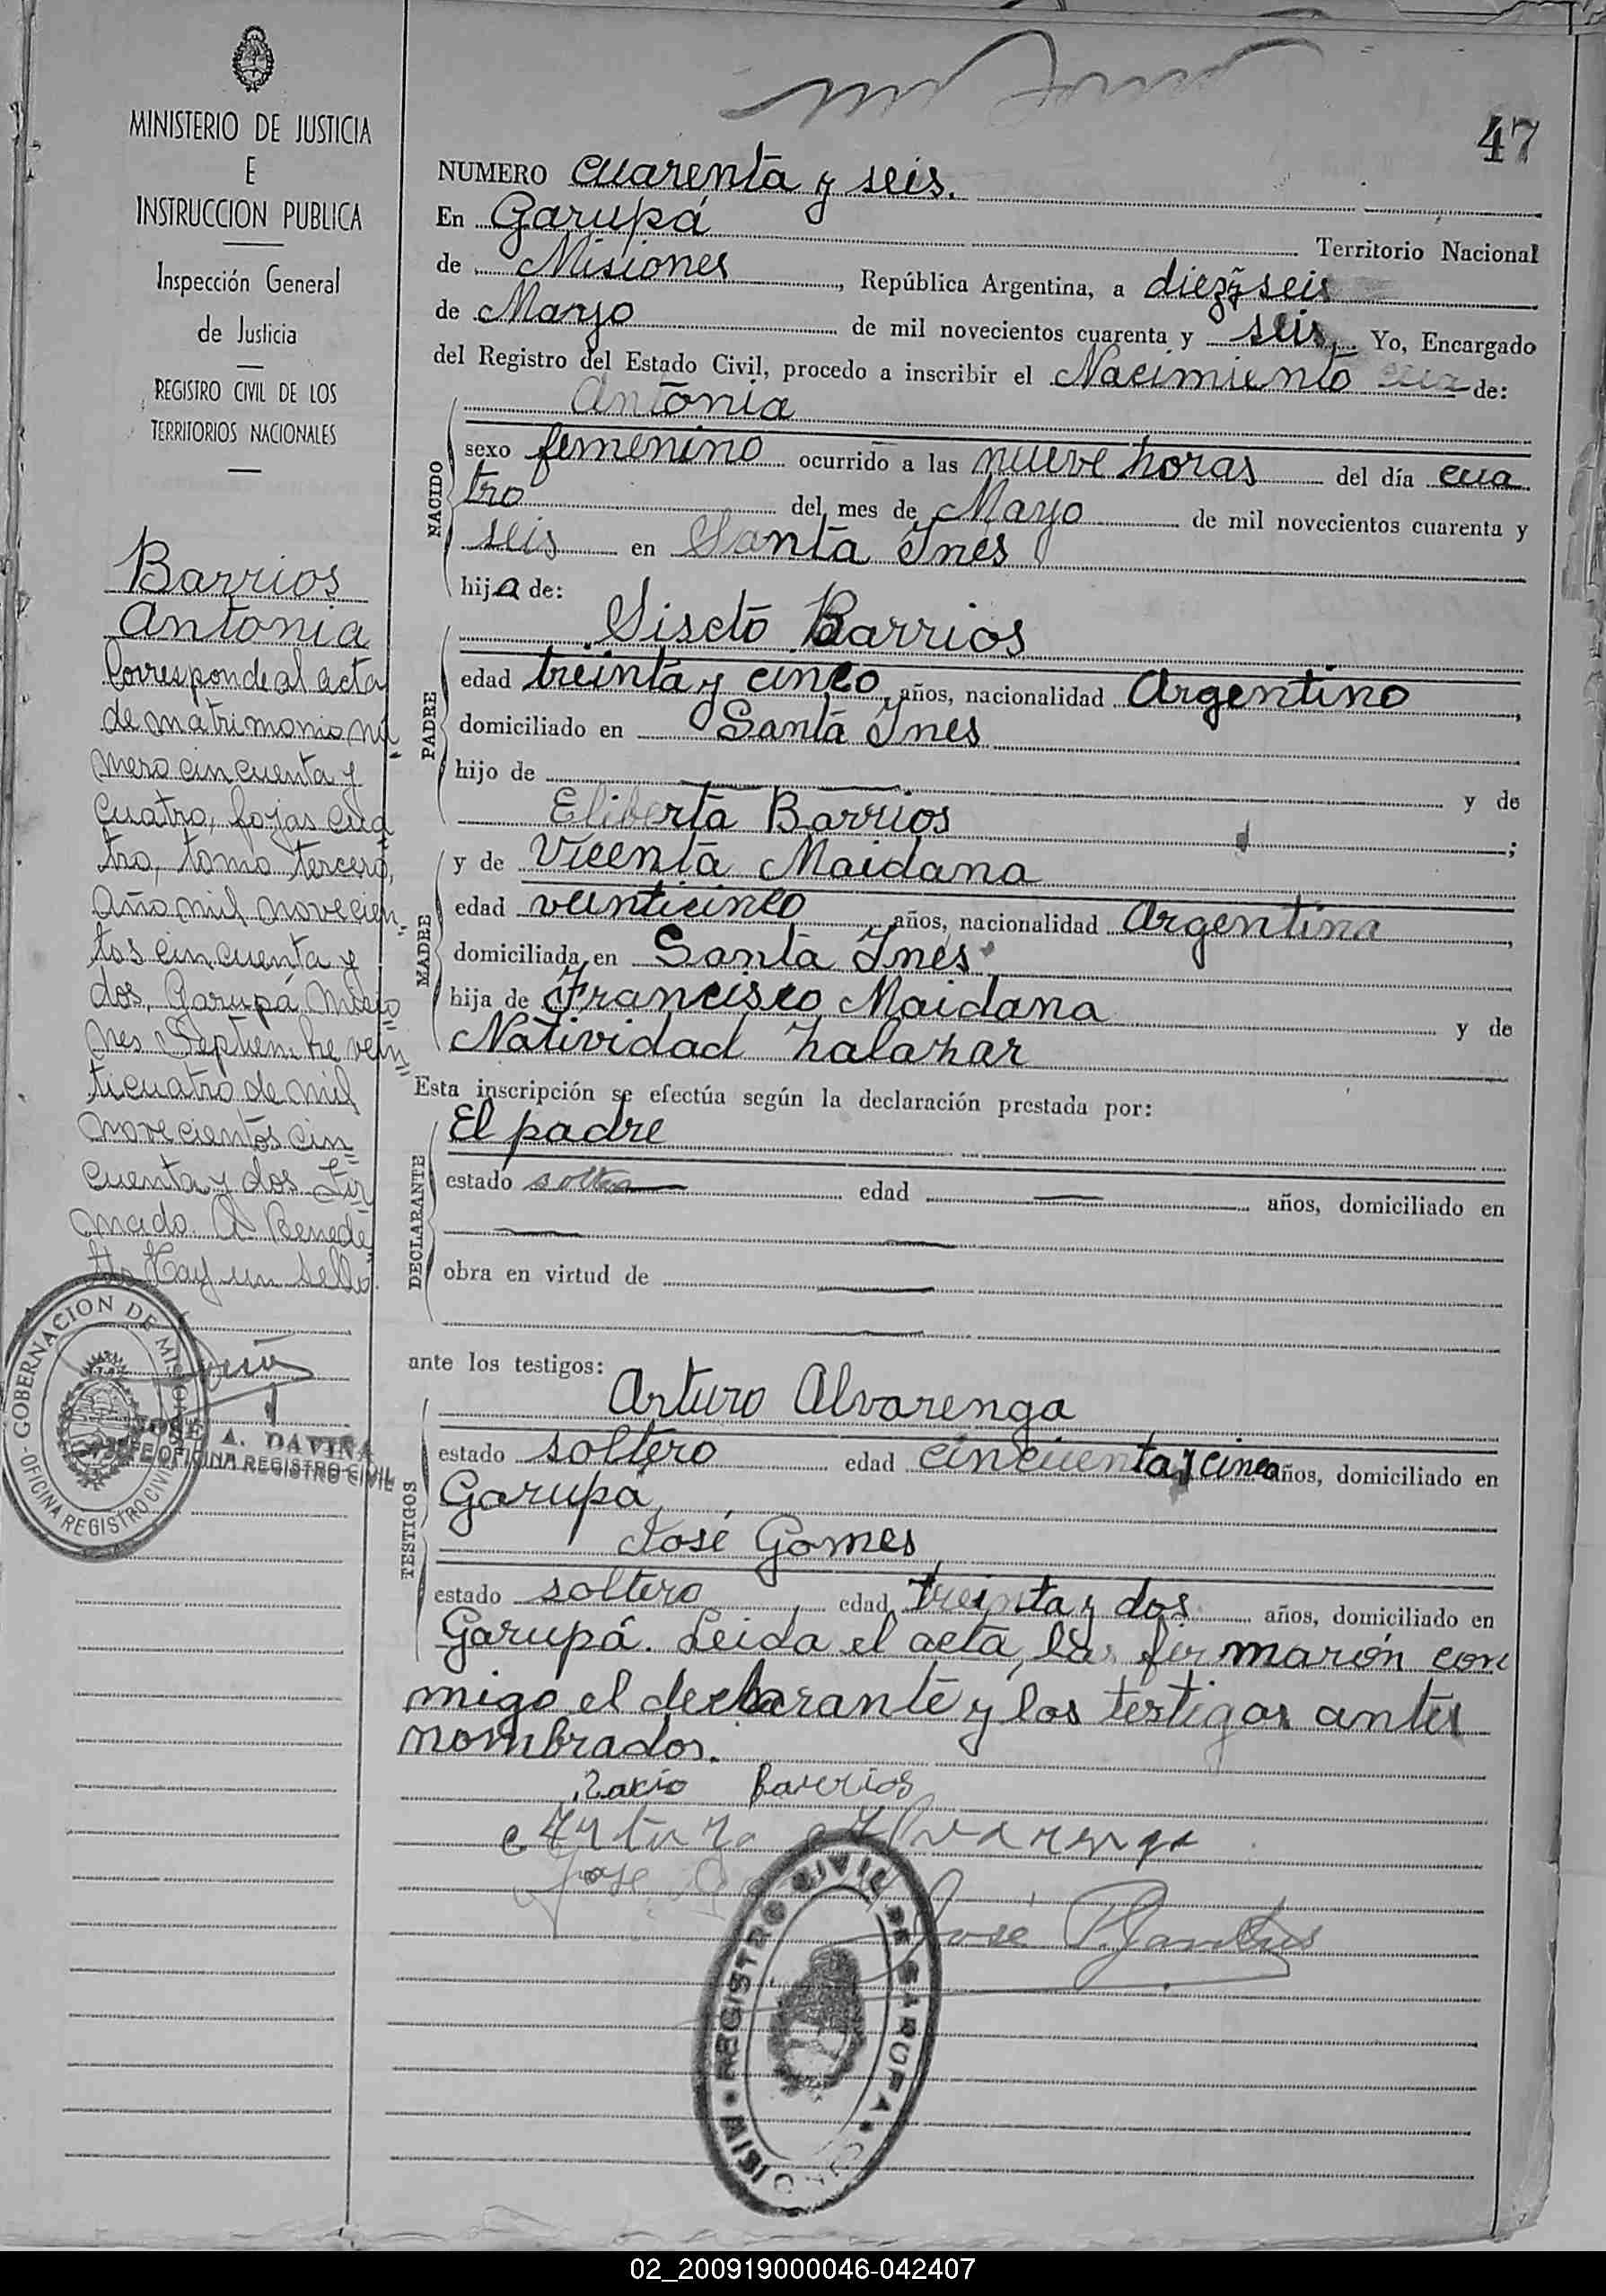 MINISTERIO DE JUSTICIA
E
INSTRUCCION PUBLICA
Inspección General
de Justicia
REGISTRO CIVIL DE LOS
TERRITORIOS NACIONALES
Barrios
Antonia
Corresponde al acta
de matrimonio nú
mero cincuenta y
cuatro, fojas cua
tro, tomo tercero,
Año mil novecien
tos cincuenta y
dos, Garupá Misio
nes Septiembre vein
ticuatro de mil
novecientos cin
cuenta y dos Fir
mado. A Benede
tto Hay un sello.
GOBERNACION DE MISIONES
OFICINA REGISTRO CIVIL
JOSE A. DAVIÑA
JEFE OFICINA REGISTRO CIVIL
47
NUMERO cuarenta y seis.
En Garupá Territorio Nacional
de Misiones, República Argentina, a diez y seis
de Mayo de mil novecientos cuarenta y seis. Yo, Encargado
del Registro del Estado Civil, procedo a inscribir el Nacimiento de:
Antonia
NACIDO
sexo femenino ocurrido a las nueve horas del día cua
tro del mes de Mayo de mil novecientos cuarenta y
seis en Santa Ines
hija de:
Siscto Barrios
PADRE
edad treinta y cinco años, nacionalidad Argentino,
domiciliado en Santa Ines
hijo de y de
Eliberta Barrios;
y de Vicenta Maidana
MADRE
edad veinticinco años, nacionalidad Argentina,
domiciliada en Santa Ines
hija de Francisco Maidana y de
Natividad Zalazar
Esta inscripción se efectúa según la declaración prestada por:
El padre
DECLARANTE
estado edad años, domiciliado en
obra en virtud de
ante los testigos:
Arturo Alvarenga
TESTIGOS
estado soltero edad cincuenta y cinco años, domiciliado en
Garupá,
José Gomes
estado soltero edad treinta y dos años, domiciliado en
Garupá. Leida el acta, la firmarón con
migo el declarante y los testigos antes
nombrados.
Barrios
Arturo Alvarenga
Jose
José P.
REGISTRO CIVIL DE GARUPA
MISIONES
02_200919000046-042407